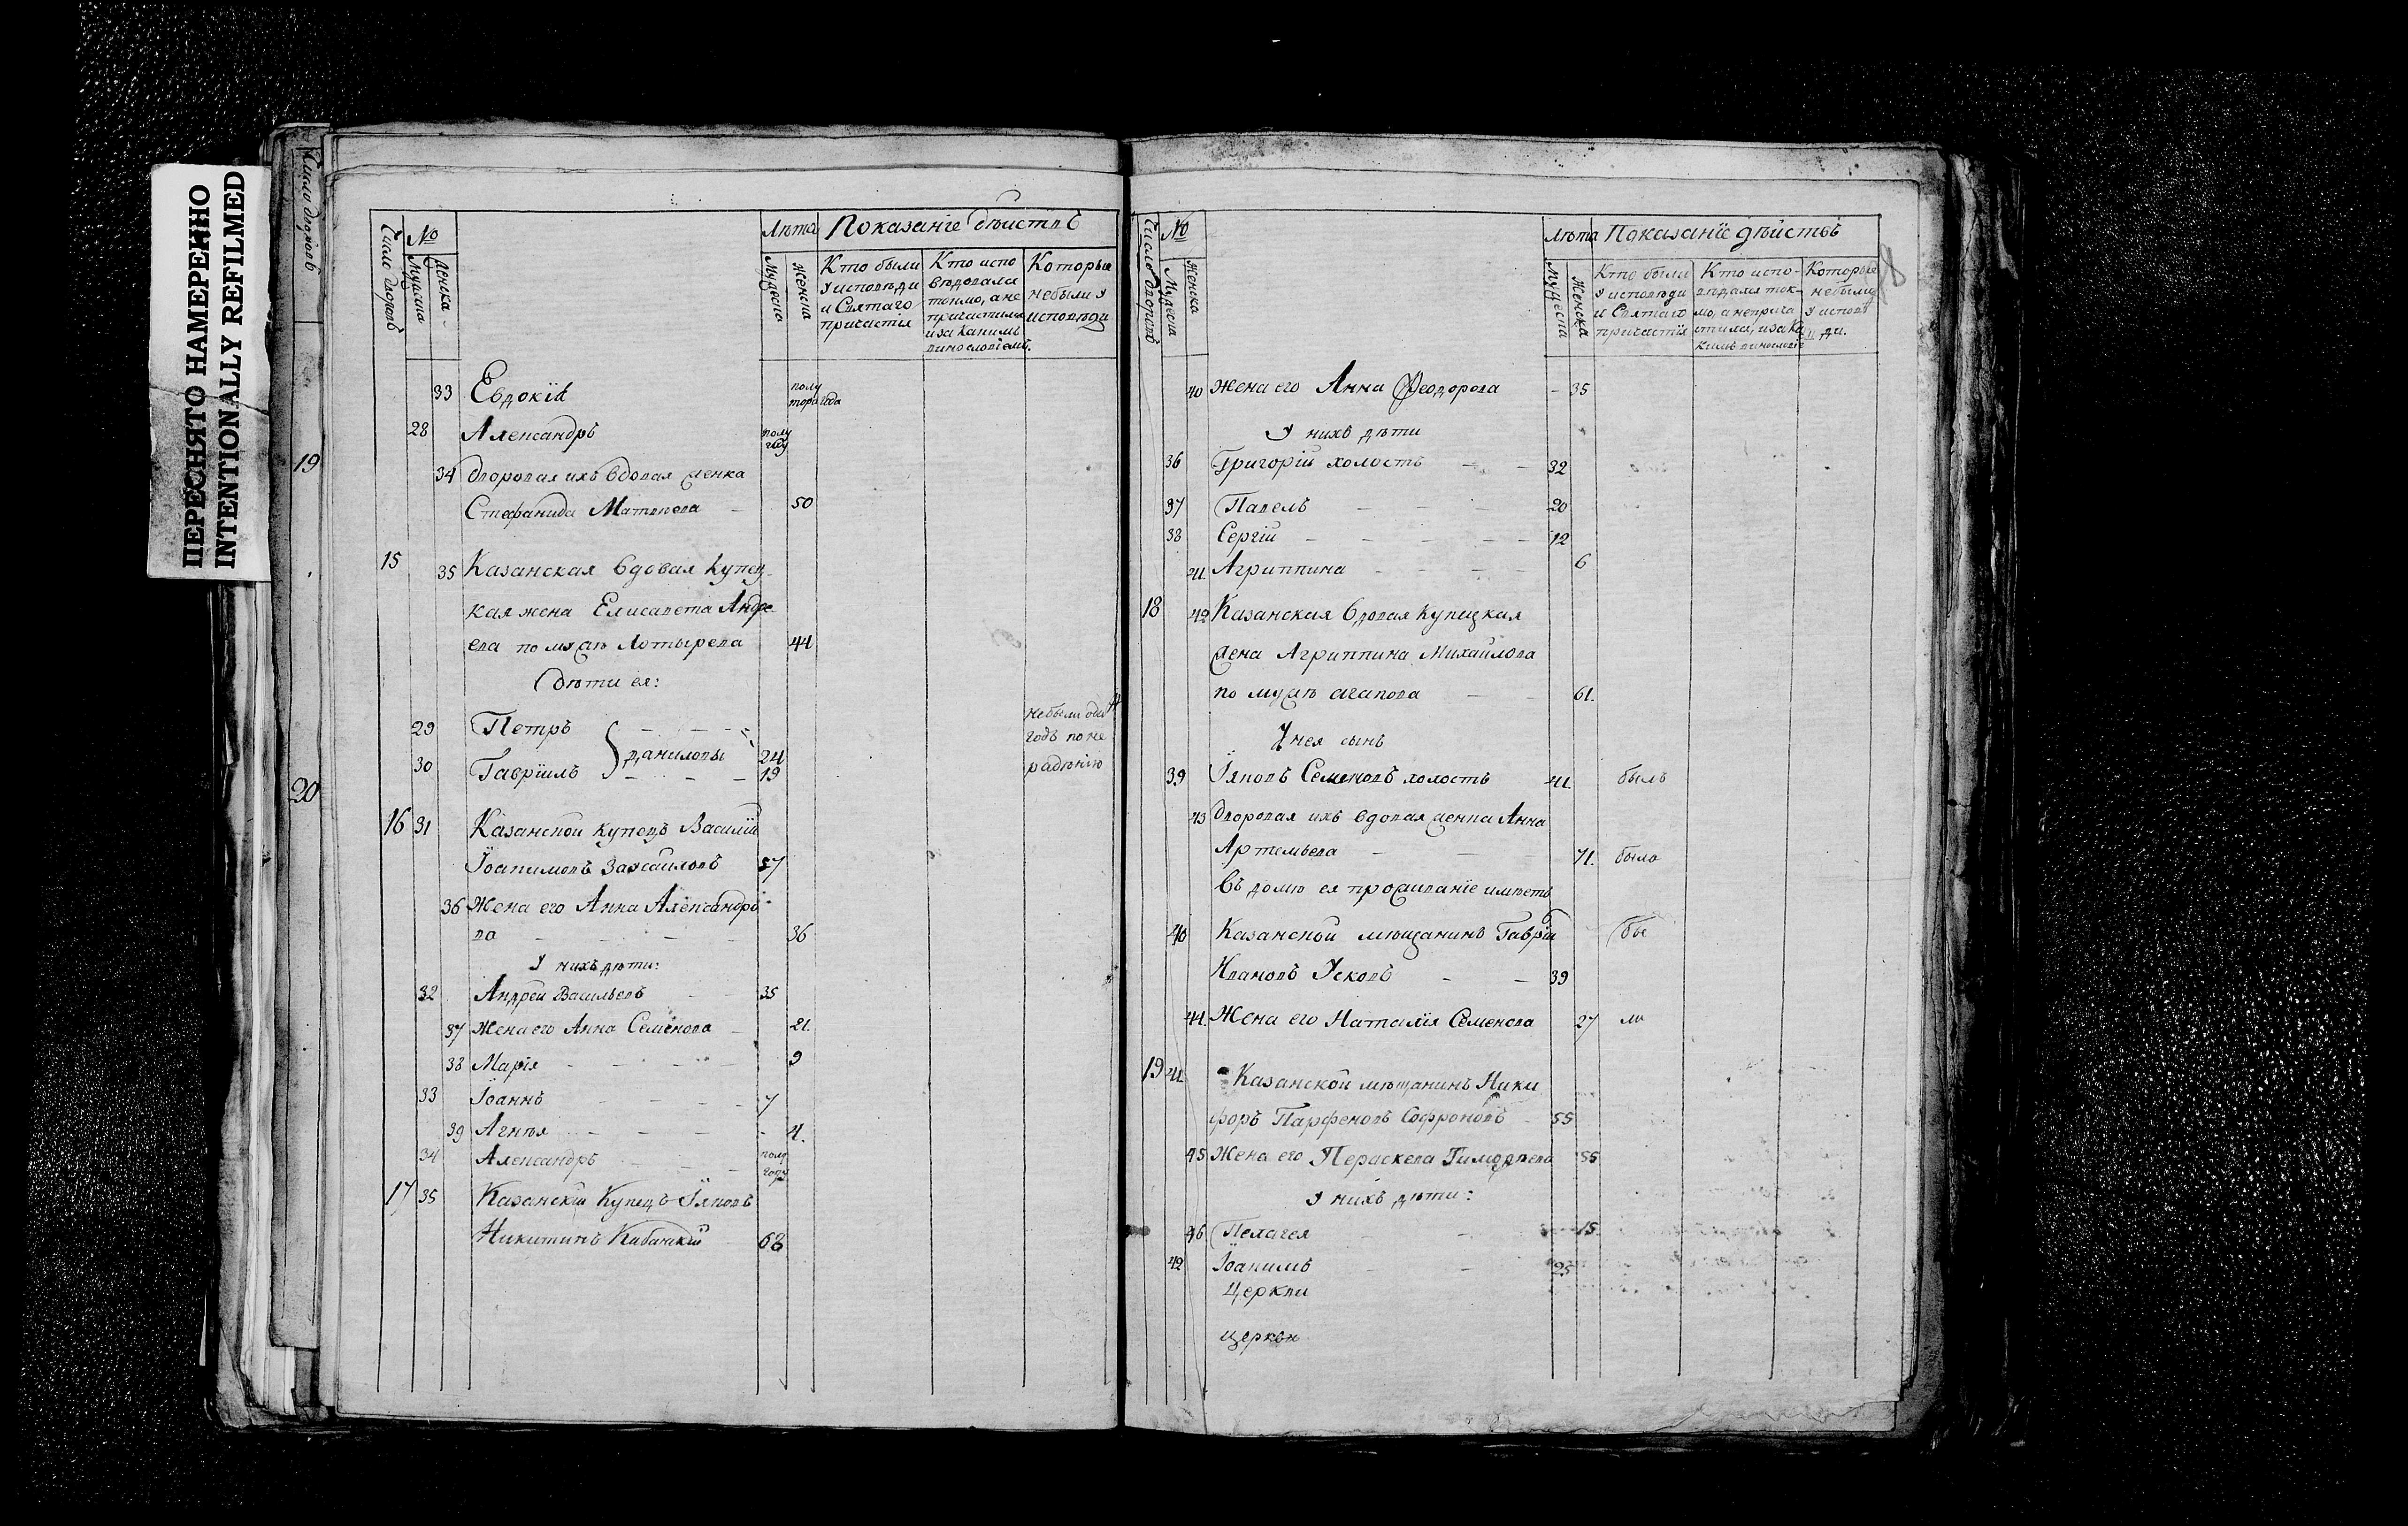 ПЕРЕСНЯТО НАМЕРЕННО
INTENTIONALLY REFILMED
Число дворовъ
19
20
Число дворовъ
№
Мужеска
Женска
Лѣта
Мужеска
Женска
Показанїе дѣиствъ
Кто были у исповѣди и Святаго причастья
Кто испо
вѣдовался
токмо, а не
причастился
и за какимъ
винословїемъ.
Которые
небыли у
исповѣди
33 Евдокїя полу тора года
28 Александръ полу году
34 дворовая ихъ вдовая женка
Стефанида Матвѣева 50
15 35 Казанская вдовая купец
кая жена Елисавета Андре
ева по мужѣ Котырева 44
дѣти ея:
29 Петръ 24
30 Гаврїилъ } Даниловы 19
небыли одинъ
годъ по не
радѣнїю
16 31 Казанской купецъ Василїй
Їоакимовъ 57
36 Жена его Анна Александро
ва 36
У нихъ дѣти:
32 Андрей Васильевъ 35
37 Жена его Анна Семенова 21
38 Марїя 9
33 Їоаннъ 7
39 Агнїя 4.
34 Александръ полу году
17 35 Казанскїй Купецъ Їяковъ
Никитинъ 68
Число дворовъ
№
Мужеска
Женска
Лѣта
Мужеска
Женска
Показанїе дѣиствъ
Кто были
у исповѣди
и Святаго
причастїя
Кто испо-
вѣдался ток-
мо, а неприча
стился, и за ка
кимъ винословїе
Которые
небыли
у исповѣ
ди.
8
40 жена его Анна Феодорова 35
У нихъ дѣти
36 Григорїй холостъ 32
37 Павелъ 20
38 Сергїй 12
41. Агриппина 6
18 42 Казанская вдовая купецкая
жена Агриппина Михайлова
по мужѣ Агапова 61.
У нея сынъ
39 Їяковъ Семеновъ холостъ 41. былъ
43 дворовая ихъ вдовая женка Анна
Артемьева 71. была
въ домѣ ея проживанїе имѣетъ
40 Казанской мѣщанинъ Гаврїи бы
Ивановъ Усковъ 39
44. Жена его Наталїя Семенова 27 ли
19 41. Казанской мѣщанинъ Ники
форъ Парфеновъ Софроновъ 55
45 Жена его Пераскева Тимофѣева 55
У нихъ дѣти:
46 Пелагея 15.
42 Їоакимъ 25
Церкви
церкви